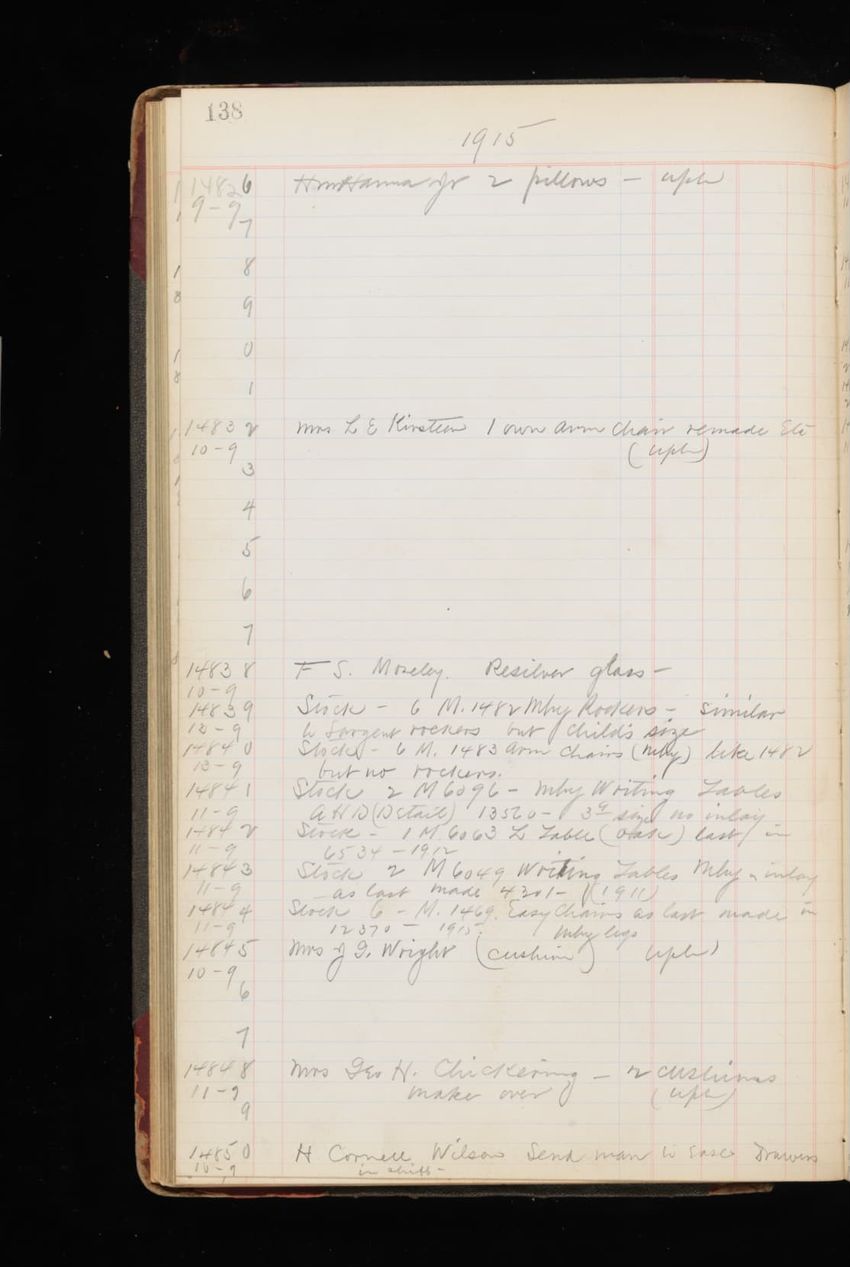 138
1915
14826 2 pillows - uph
9-9
7
8
9
0
1
14832 Mrs L E Kirstein 1 own arm chair remade Etc
10-9 (uph)
3
4
5
6
7
14838 F S. Moseley. Resilver glass -
10-9
14839 Stock - 6 M. 1482 Mhy Rockers - similar
13-9 to Sargent rockers but child's size
14840 Stock - 6 M. 1483 arm chairs (Mhy) like 1482
13-9 but no rockers.
14841 Stock 2 M 6096 - Mhy Writing Tables
11-9 A H D (Detail) 13560 - size no inlay
14842 Stock - 1 M 6063 L Table (oak) last in
11-9 6534 - 1912
14843 Stock 2 M 6049 Writing Tables Mhy inlay
11-9 as last made 4301 - (1911)
14844 Stock 6 - M. 1469. Easy Chairs as last made in
11-9 12370 - 1915. Mhy legs
14845 Mrs J G. Wright (cushion) uph
10-9
6
7
14848 Mrs Geo H. Chickering - 2 cushions
11-9 make over (uph)
9
14850 H Cornell Wilson Send man to Ease Drawers
10-9 in